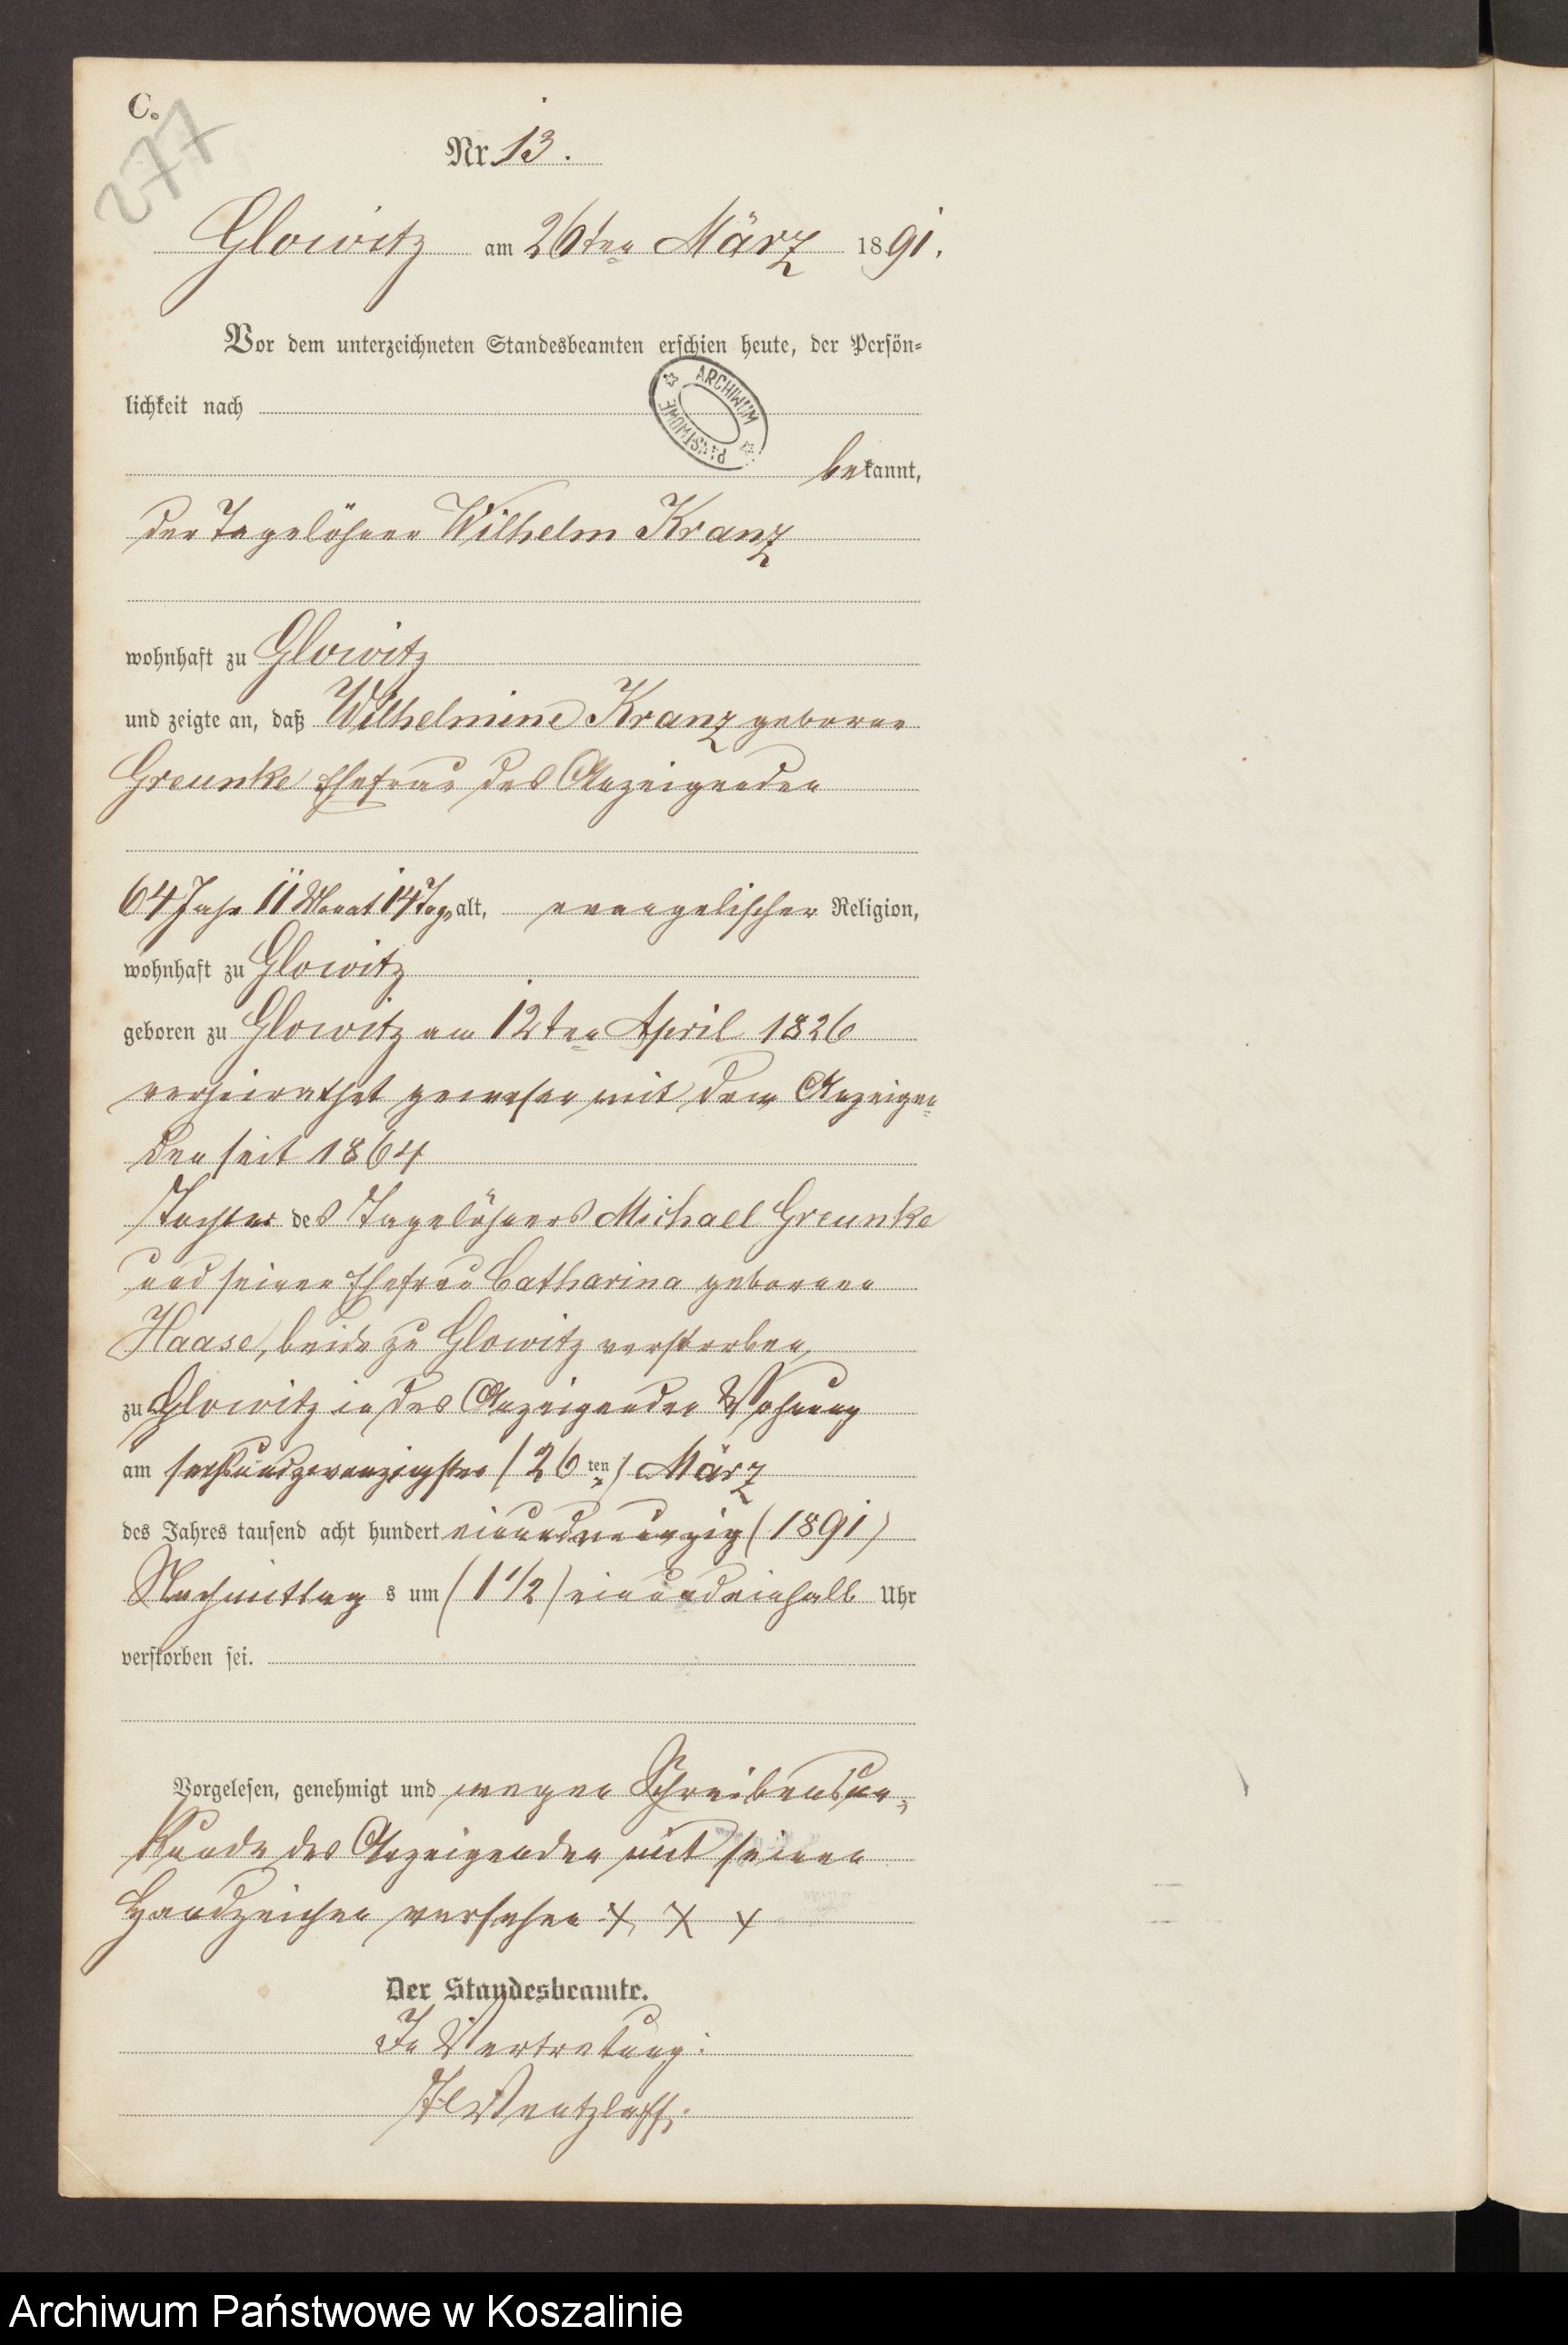 C.
277
Nr. 13.
Glowitz am 26ten März 1891.
Vor dem unterzeichneten Standesbeamten erschien heute, der Persön-
lichkeit nach
ARCHIWUM PAŃSTWOWE
bekannt,
der Tagelöhner Wilhelm Kranz
wohnhaft zu Glowitz
und zeigte an, daß Wilhelmine Kranz geborne
Greunke Ehefrau des Anzeigenden
64 Jahr 11 Monat 14 Tage alt, evangelischer Religion,
wohnhaft zu Glowitz
geboren zu Glowitz am 12ten April 1826
verheirathet gewesen mit dem Anzeigen-
den seit 1864
Tochter des Tagelöhners Michael Greunke
und seiner Ehefrau Catharina gebornen
Haase, beide zu Glowitz verstorben,
zu Glowitz in des Anzeigenden Wohnung
am sechsundzwanzigsten (26ten) März
des Jahres tausend acht hundert einundneunzig (1891)
Nachmittag s um (1 1/2) einundeinhalb Uhr
verstorben sei.
Vorgelesen, genehmigt und wegen Schreibensun-
kunde des Anzeigenden mit seinen
Handzeichen versehen + + +
Der Standesbeamte.
In Vertretung:
Wentzlaff.
Archiwum Państwowe w Koszalinie